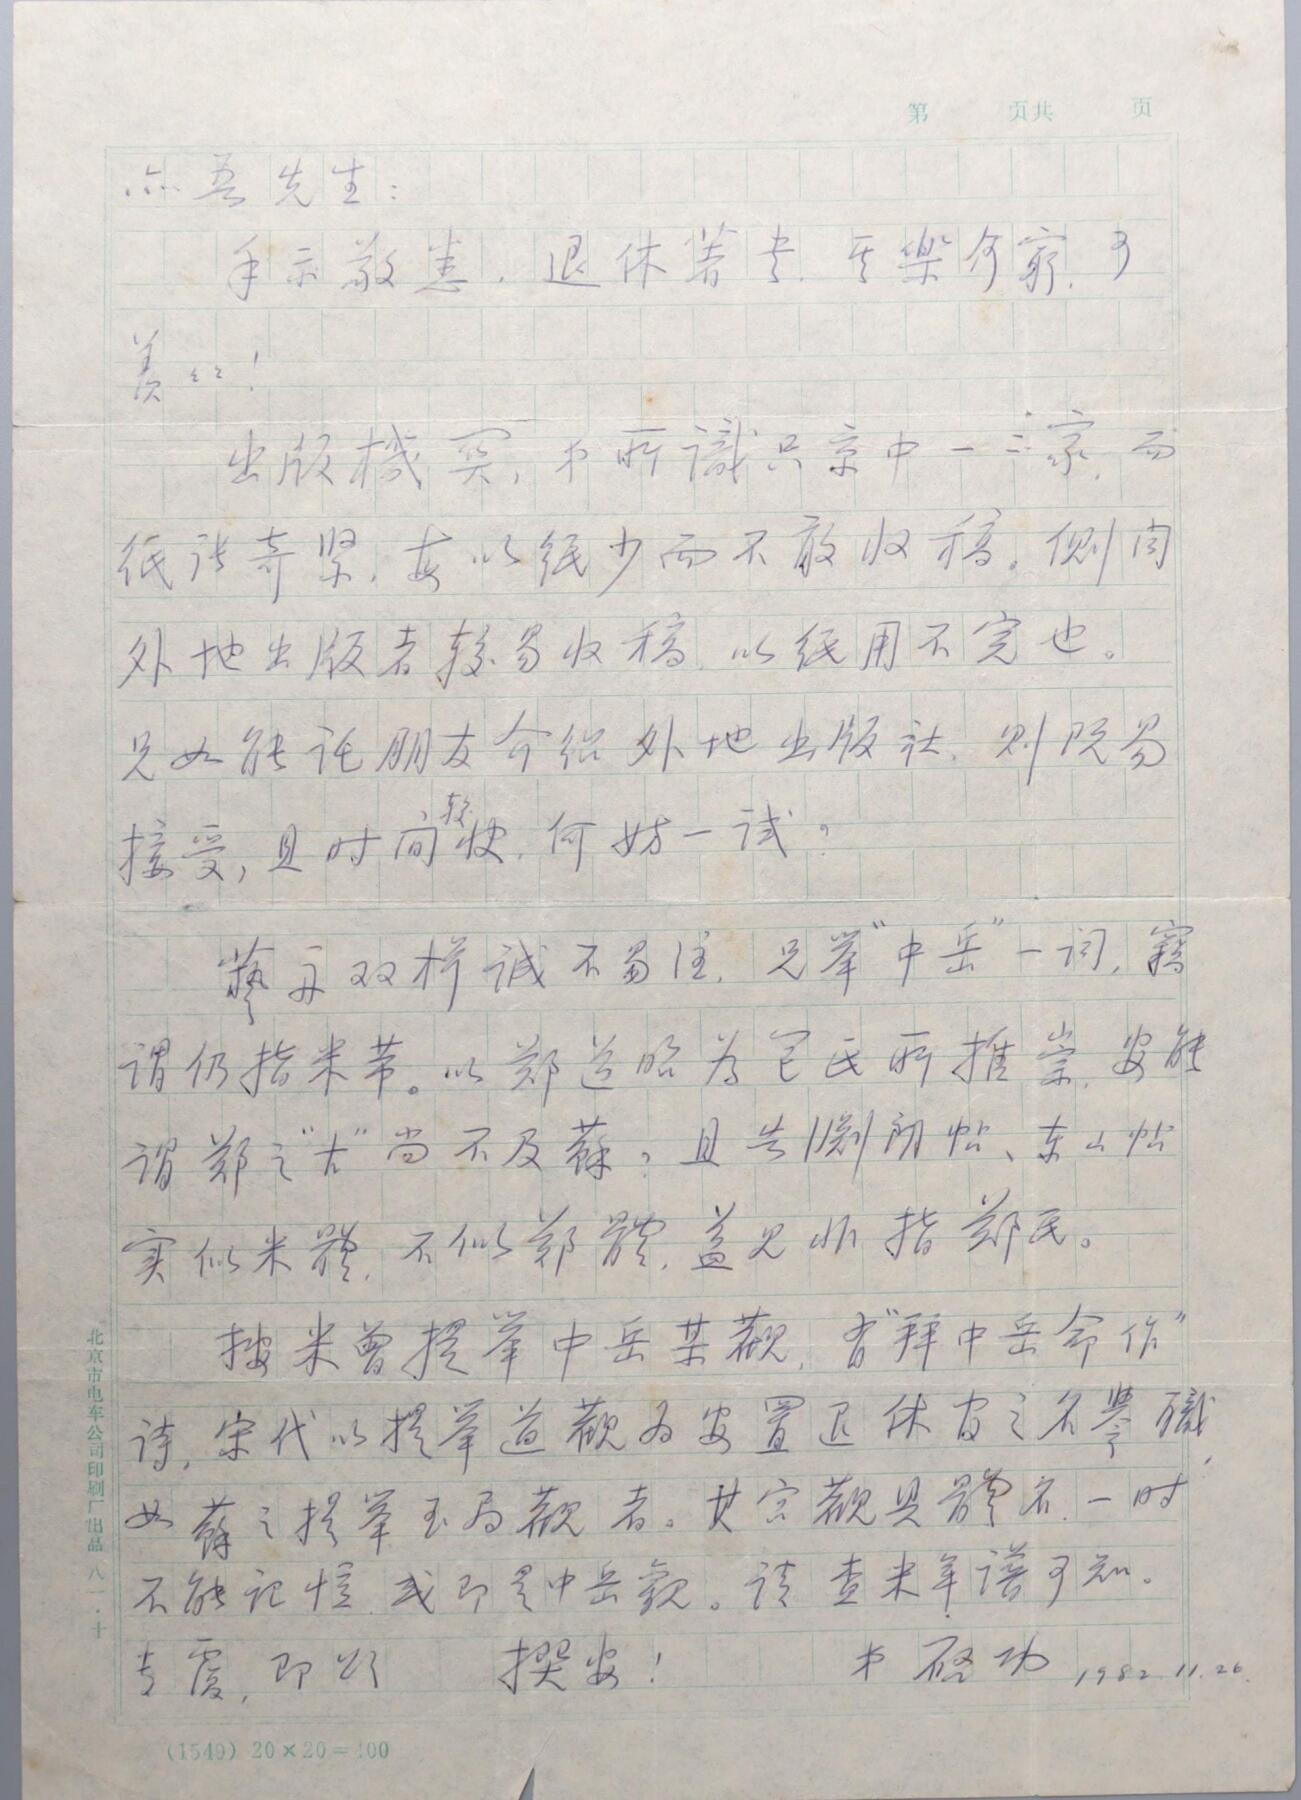 第 页共 页
亦吾先生：
手示敬悉，退休著书，其樂何窮，可
羡々！
出版機関，弟所識只京中一二家，而
纸张奇紧，每以纸少而不敢收稿。侧闻
外地出版者较易收稿，以纸用不完也。
兄如能託朋友介绍外地出版社，则既易
接受，且时间较快，何妨一试？
藝舟双楫诚不易注，兄举“中岳”一词，窃
谓仍指米芾。以郑道昭为包氏所推崇，安能
谓郑之“古”尚不及蘇？且告澍朗帖、东山帖
实似米體，不似郑體，益见非指郑氏。
按米曾提举中岳某觀，有“拜中岳命作”
诗，宋代以提举道觀为安置退休官之名譽職，
如蘇之提举玉局觀者。其宫觀具體名一时
不能记憶，或即是中岳觀。请查米年谱可知。
专覆，即颂 撰安！ 弟 启功 1982.11.26.
北京市电车公司印刷厂出品 八一·十
(1549) 20×20=400